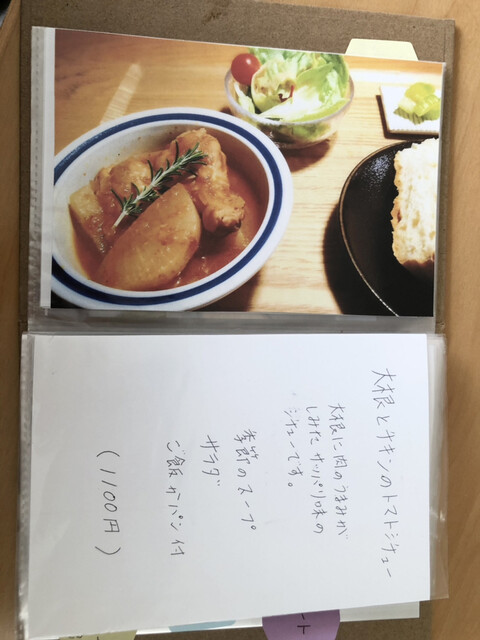 大根とチキンのトマトシチュー
大根に肉のうまみが
しみた サッパリ味の
シチューです。
季節のスープ
サラダ
ご飯かパン付
(1100円)
ート